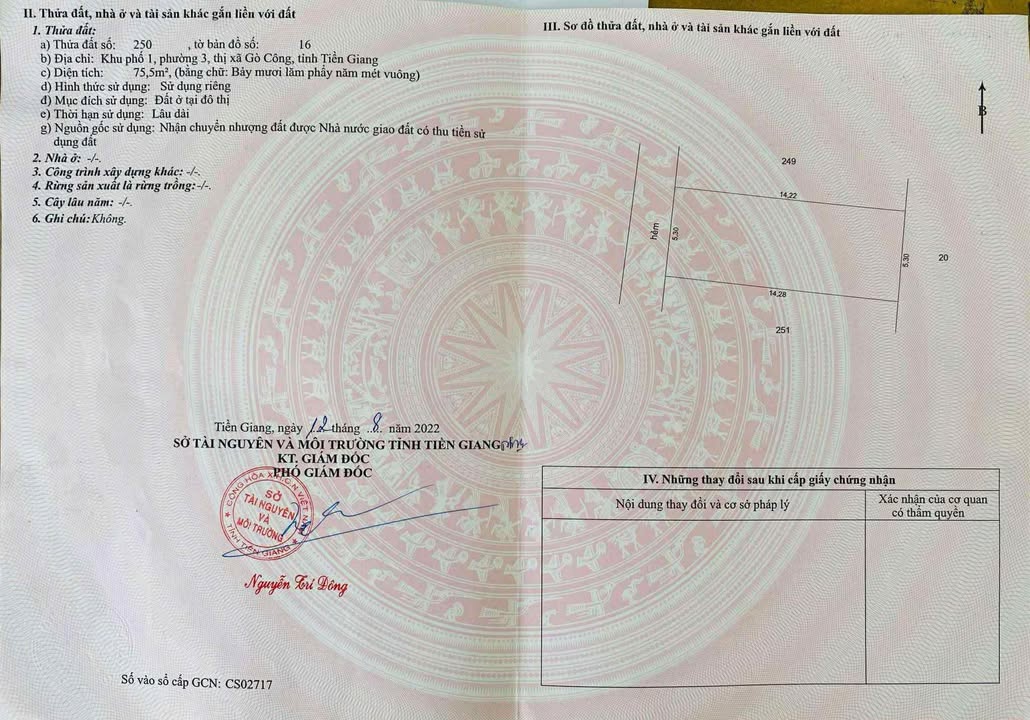 II. Thửa đất, nhà ở và tài sản khác gắn liền với đất
1. Thửa đất:
a) Thửa đất số: 250 , tờ bản đồ số: 16
b) Địa chỉ: Khu phố 1, phường 3, thị xã Gò Công, tỉnh Tiền Giang
c) Diện tích: 75,5m², (bằng chữ: Bảy mươi lăm phẩy năm mét vuông)
d) Hình thức sử dụng: Sử dụng riêng
đ) Mục đích sử dụng: Đất ở tại đô thị
e) Thời hạn sử dụng: Lâu dài
g) Nguồn gốc sử dụng: Nhận chuyển nhượng đất được Nhà nước giao đất có thu tiền sử
dụng đất
2. Nhà ở: -/-.
3. Công trình xây dựng khác: -/-.
4. Rừng sản xuất là rừng trồng:-/-.
5. Cây lâu năm: -/-.
6. Ghi chú:Không.
Tiền Giang, ngày 12 tháng 8 năm 2022
SỞ TÀI NGUYÊN VÀ MÔI TRƯỜNG TỈNH TIỀN GIANG
KT. GIÁM ĐỐC
PHÓ GIÁM ĐỐC
CỘNG HÒA X.H.C.N VIỆT NAM
SỞ
TÀI NGUYÊN
VÀ
MÔI TRƯỜNG
TỈNH TIỀN GIANG
Nguyễn Trí Đông
Số vào sổ cấp GCN: CS02717
III. Sơ đồ thửa đất, nhà ở và tài sản khác gắn liền với đất
B
249
14,22
hẻm
5,30
5,30
20
14,28
251
IV. Những thay đổi sau khi cấp giấy chứng nhận
Nội dung thay đổi và cơ sở pháp lý
Xác nhận của cơ quan
có thẩm quyền